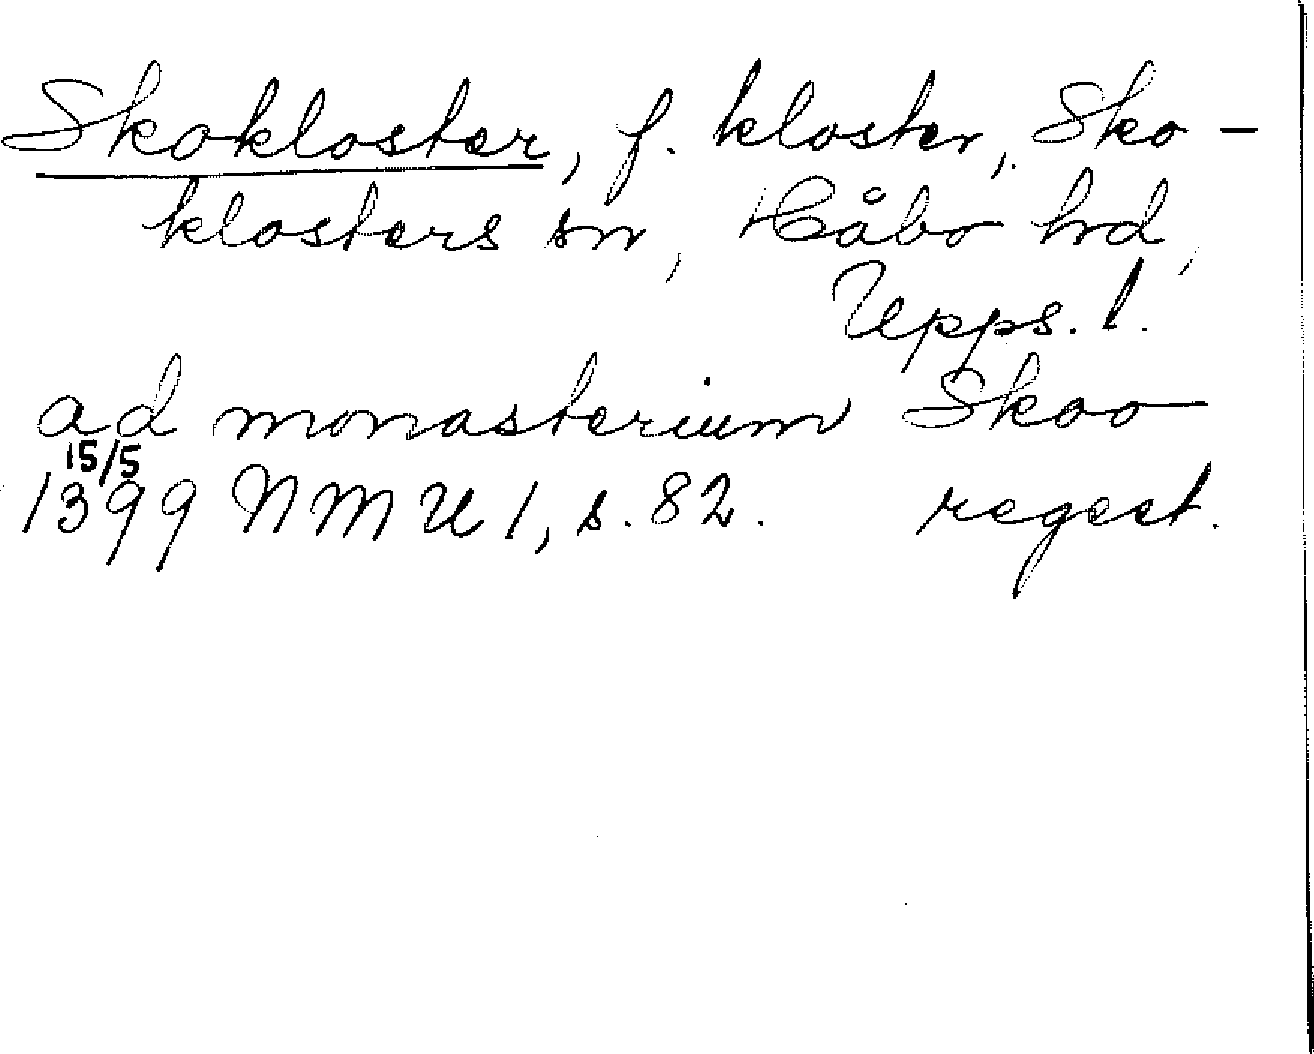 Skokloster, f. kloster, Sko-
klosters sn, Håbo hd,
Upps. l.
ad monasterium Skoo
15/5
1399 NMU 1, s. 82. regest.